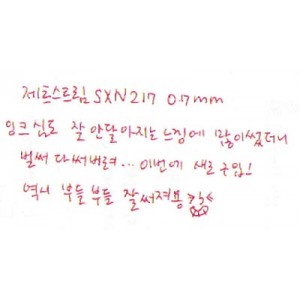 제트스트림 SXN217 0.7mm
잉크심도 잘 안달아지는 느낌에 많이썼더니
벌써 다써버려... 이번에 새로구입!
역시 부들부들 잘써져용